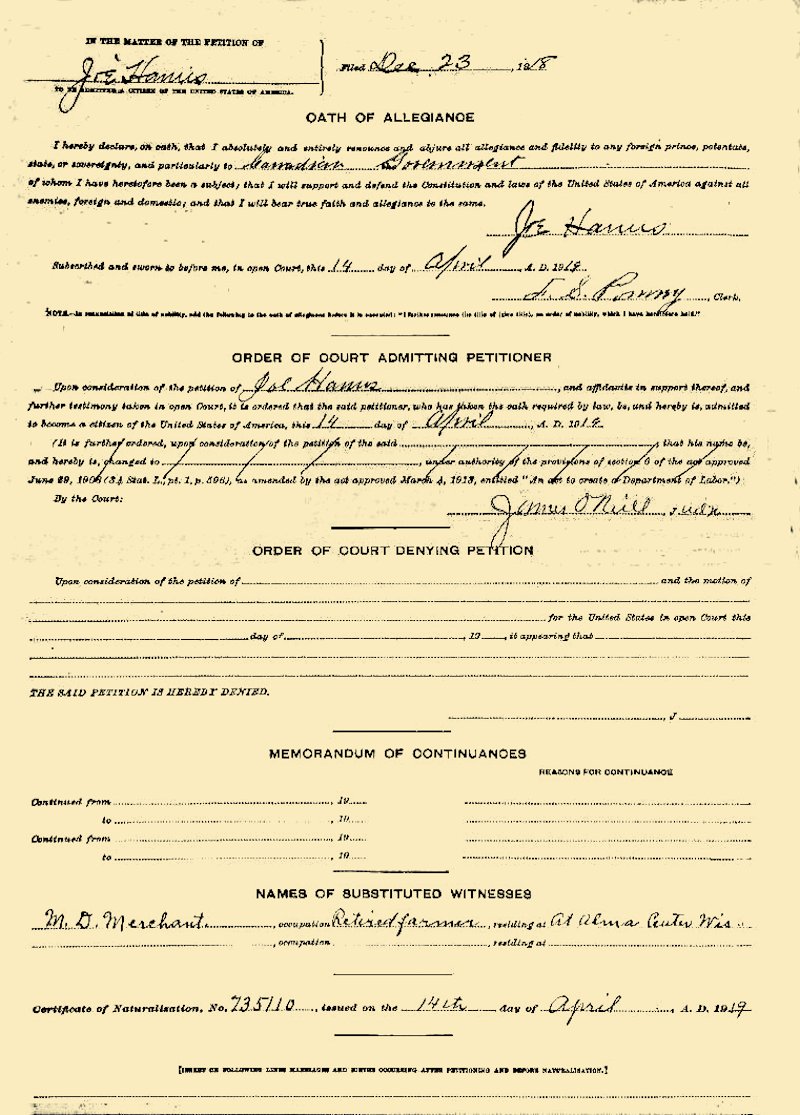 IN THE MATTER OF THE PETITION OF
Joe Hanus
TO BE ADMITTED A CITIZEN OF THE UNITED STATES OF AMERICA.
Filed Dec 23, 1918
OATH OF ALLEGIANCE
I hereby declare, on oath, that I absolutely and entirely renounce and abjure all allegiance and fidelity to any foreign prince, potentate,
state, or sovereignty, and particularly to Canadian Government
of whom I have heretofore been a subject; that I will support and defend the Constitution and laws of the United States of America against all
enemies, foreign and domestic; and that I will bear true faith and allegiance to the same.
Joe Hanus
Subscribed and sworn to before me, in open Court, this 14 day of April, A. D. 1919
F. S., Clerk.
NOTE.—In renunciation of title of nobility, add the following to the oath of allegiance before it is executed: "I further renounce the title of (give title), an order of nobility, which I have heretofore held."
ORDER OF COURT ADMITTING PETITIONER
Upon consideration of the petition of Joe Hanus, and affidavits in support thereof, and
further testimony taken in open Court, it is ordered that the said petitioner, who has taken the oath required by law, be, and hereby is, admitted
to become a citizen of the United States of America, this 14 day of April, A. D. 1919
(It is further ordered, upon consideration of the petition of the said, that his name be,
and hereby is, changed to, under authority of the provisions of section 6 of the act approved
June 29, 1906 (34 Stat. L., pt. 1, p. 596), as amended by the act approved March 4, 1913, entitled "An act to create a Department of Labor.")
By the Court:
James O'Neill, Judge
ORDER OF COURT DENYING PETITION
Upon consideration of the petition of and the motion of
for the United States in open Court this
day of, 19, it appearing that
THE SAID PETITION IS HEREBY DENIED.
, J
MEMORANDUM OF CONTINUANCES
REASONS FOR CONTINUANCE
Continued from, 19
to, 19
Continued from, 19
to, 19
NAMES OF SUBSTITUTED WITNESSES
M. D. Merchant, occupation Retired farmer, residing at At Alma Center Wis
, occupation, residing at
Certificate of Naturalization, No. 735110, issued on the 14th day of April, A. D. 1919
[INSERT ON FOLLOWING LINES MARRIAGES AND BIRTHS OCCURRING AFTER PETITIONING AND BEFORE NATURALIZATION.]